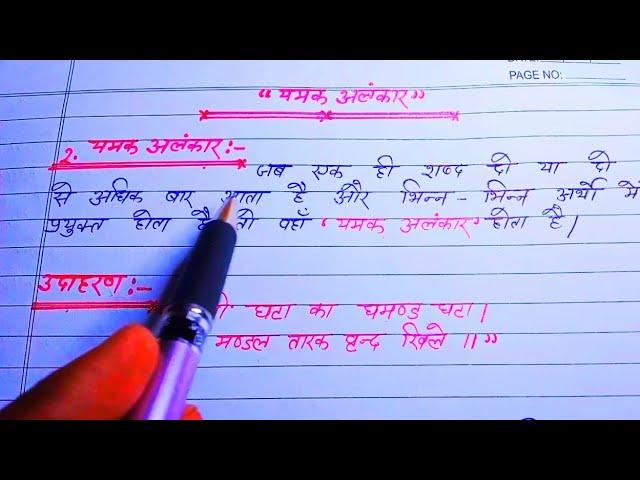 PAGE NO:
“ यमक अलंकार”
2. यमक अलंकार:-
जब एक ही शब्द दो या दो
से अधिक बार आता है और भिन्न - भिन्न अर्थो में
प्रयुक्त होता है तो वहाँ “यमक अलंकार” होता है।
उदाहरण:-
घटा का घमण्ड घटा।
मण्डल तारक वृन्द खिले ॥”